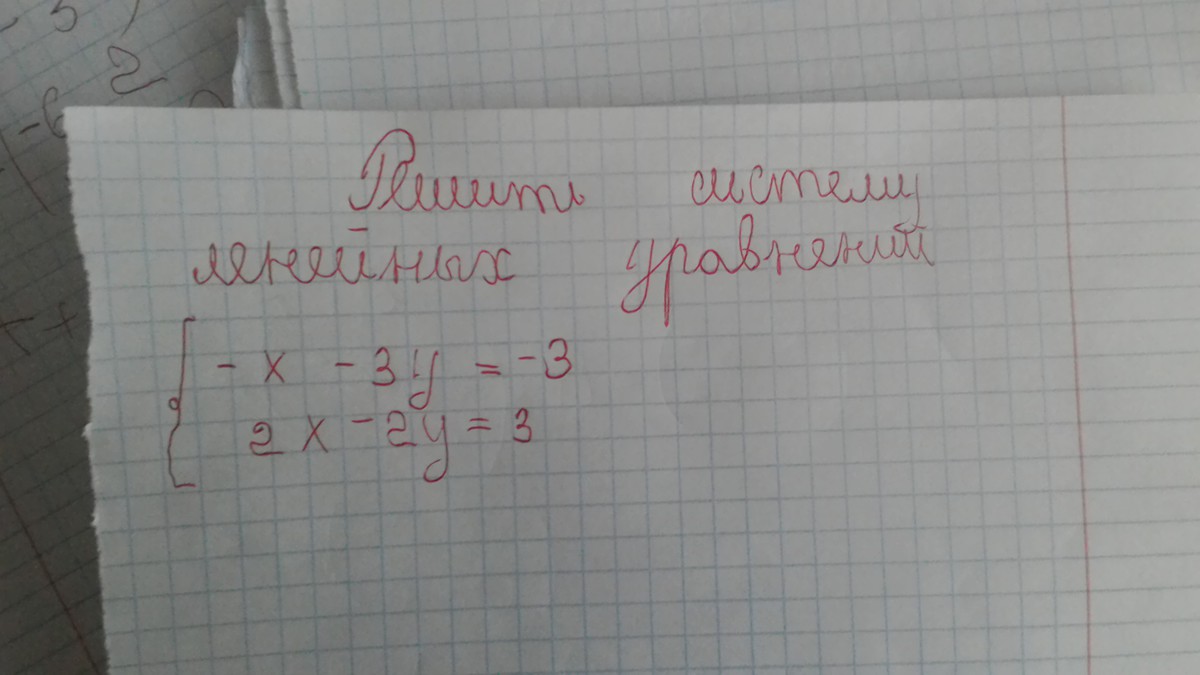 - 3
2
-6
Решить систему
линейных уравнений
- x - 3y = -3
2x - 2y = 3